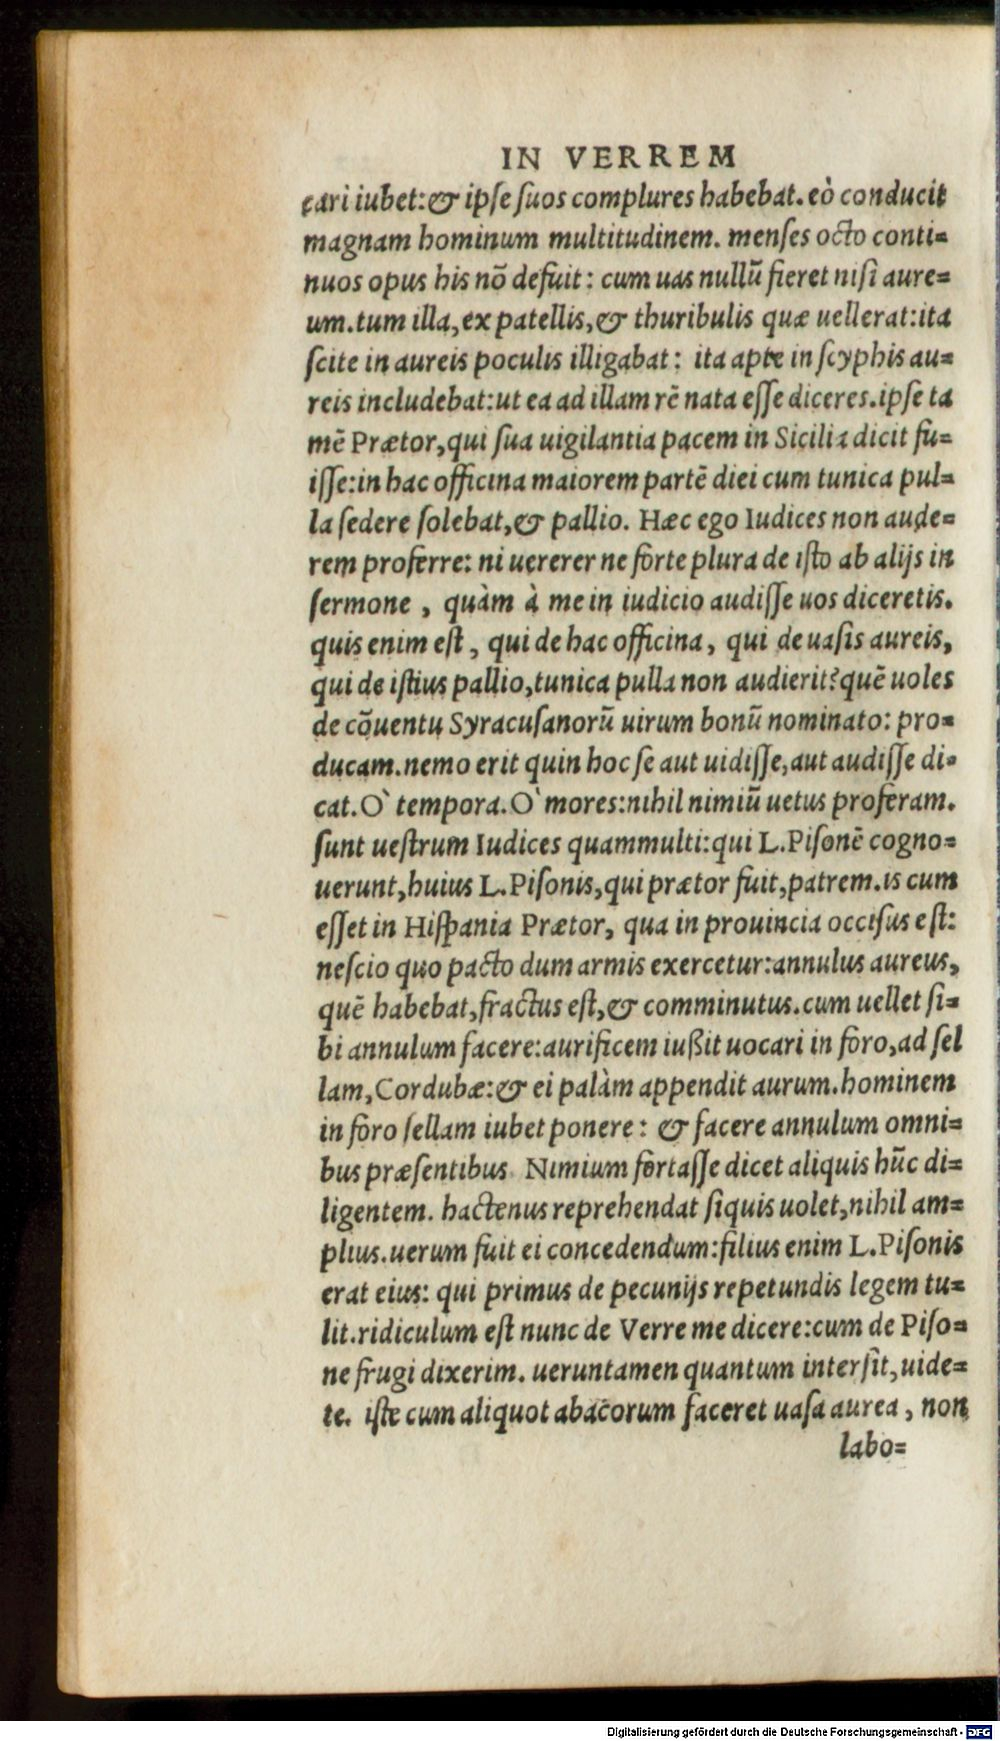 IN VERREM
cari iubet:& ipſe ſuos complures habebat. eò conducit
magnam hominum multitudinem. menſes octo conti=
nuos opus his nõ defuit: cum uas nullũ fieret niſi aure=
um.tum illa,ex patellis,& thuribulis quæ uellerat:ita
ſcite in aureis poculis illigabat: ita apte in ſcyphis au=
reis includebat:ut ea ad illam rē nata eſſe diceres.ipſe ta
mē Prætor,qui ſua uigilantia pacem in Sicilia dicit fu=
iſſe:in hac officina maiorem partē diei cum tunica pul=
la ſedere ſolebat,& pallio. Hæc ego Iudices non aude=
rem proferre: ni uererer ne forte plura de iſto ab alijs in
ſermone , quàm à me in iudicio audiſſe uos diceretis.
quis enim eſt, qui de hac officina, qui de uaſis aureis,
qui de iſtius pallio,tunica pulla non audierit?quē uoles
de cõuentu Syracuſanorũ uirum bonũ nominato: pro=
ducam.nemo erit quin hoc ſe aut uidiſſe,aut audiſſe di=
cat.O` tempora.O` mores:nihil nimiũ uetus proferam.
ſunt ueſtrum Iudices quammulti:qui L.Piſonē cogno=
uerunt,huius L.Piſonis,qui prætor fuit,patrem.is cum
eſſet in Hiſpania Prætor, qua in prouincia occiſus eſt:
neſcio quo pacto dum armis exercetur:annulus aureus,
quē habebat,fractus eſt,& comminutus.cum uellet ſi=
bi annulum facere:aurificem iußit uocari in foro,ad ſel
lam,Cordubæ:& ei palàm appendit aurum.hominem
in foro ſellam iubet ponere: & facere annulum omni=
bus præſentibus. Nimium fortaſſe dicet aliquis hũc di=
ligentem. hactenus reprehendat ſiquis uolet,nihil am=
plius.uerum fuit ei concedendum:filius enim L.Piſonis
erat eius: qui primus de pecunijs repetundis legem tu=
lit.ridiculum eſt nunc de Verre me dicere:cum de Piſo=
ne frugi dixerim. ueruntamen quantum interſit,uide=
te. iſte cum aliquot abacorum faceret uaſa aurea, non
labo=
Digitalisierung gefördert durch die Deutsche Forschungsgemeinschaft - DFG